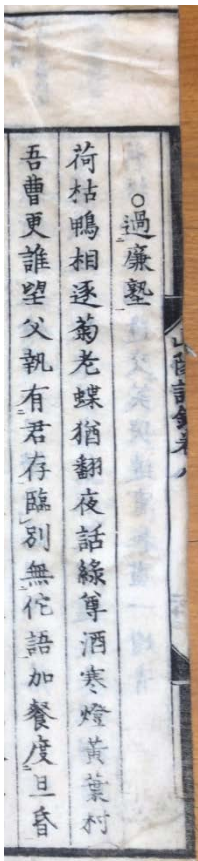 山陽詩鈔卷八
○過廉塾
荷枯鴨相逐菊老蝶猶翻夜話綠尊酒寒燈黃葉村
吾曹更誰望父執有君存臨別無佗語加餐度旦昏